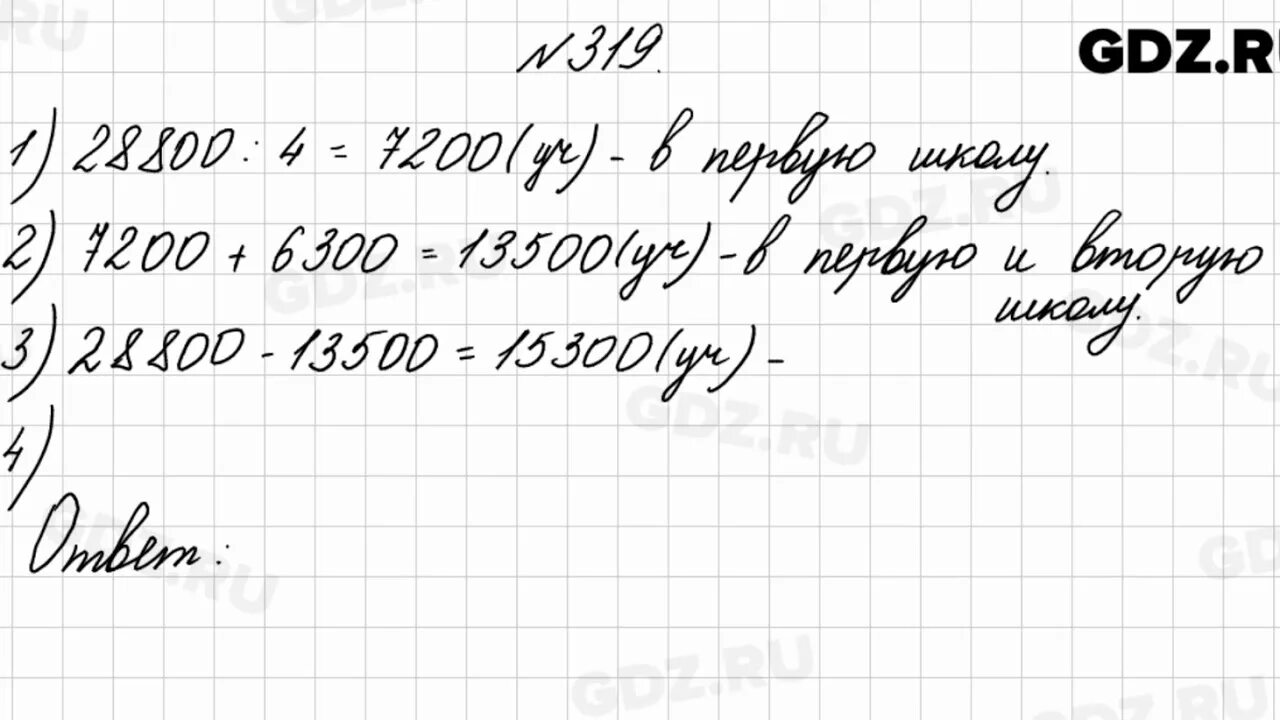 №319.
GDZ.RU
1) 28800 : 4 = 7200 (уч) - в первую школу.
2) 7200 + 6300 = 13500 (уч) - в первую и вторую
школу.
3) 28800 - 13500 = 15300 (уч) -
4)
Ответ: